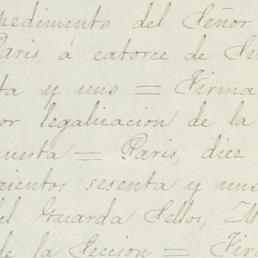 pedimento del Señor
Paris, a catorce de Se
ta y uno = Firma
or legalizacion de la
uesta = Paris, diez
cientos sesenta y uno
del Guarda Sellos, M
de la Seccion = Fir